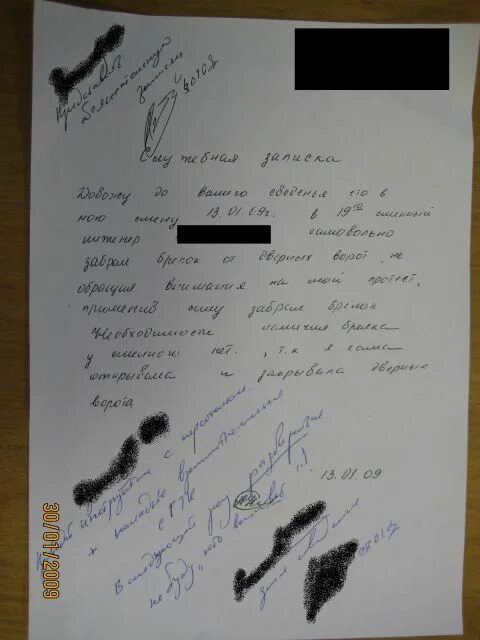 Представить
объяснительную
записку
Служебная записка
Довожу до вашего сведенья что в
мою смену 13.01.09г. в 19 10 сменный
инженер самовольно
забрал брелок от дверных ворот, не
обращая внимания на мой протест,
применив силу забрал брелок
Необходимости наличия брелка
у сменного нет, т.к я сама
открывала и закрывала дверные
ворота
13.01.09
инструктаж с персоналом
+ наладьте взаимоотношения
с
В следующий раз разбираться
не буду, кто виноват !!!
30/01/2009